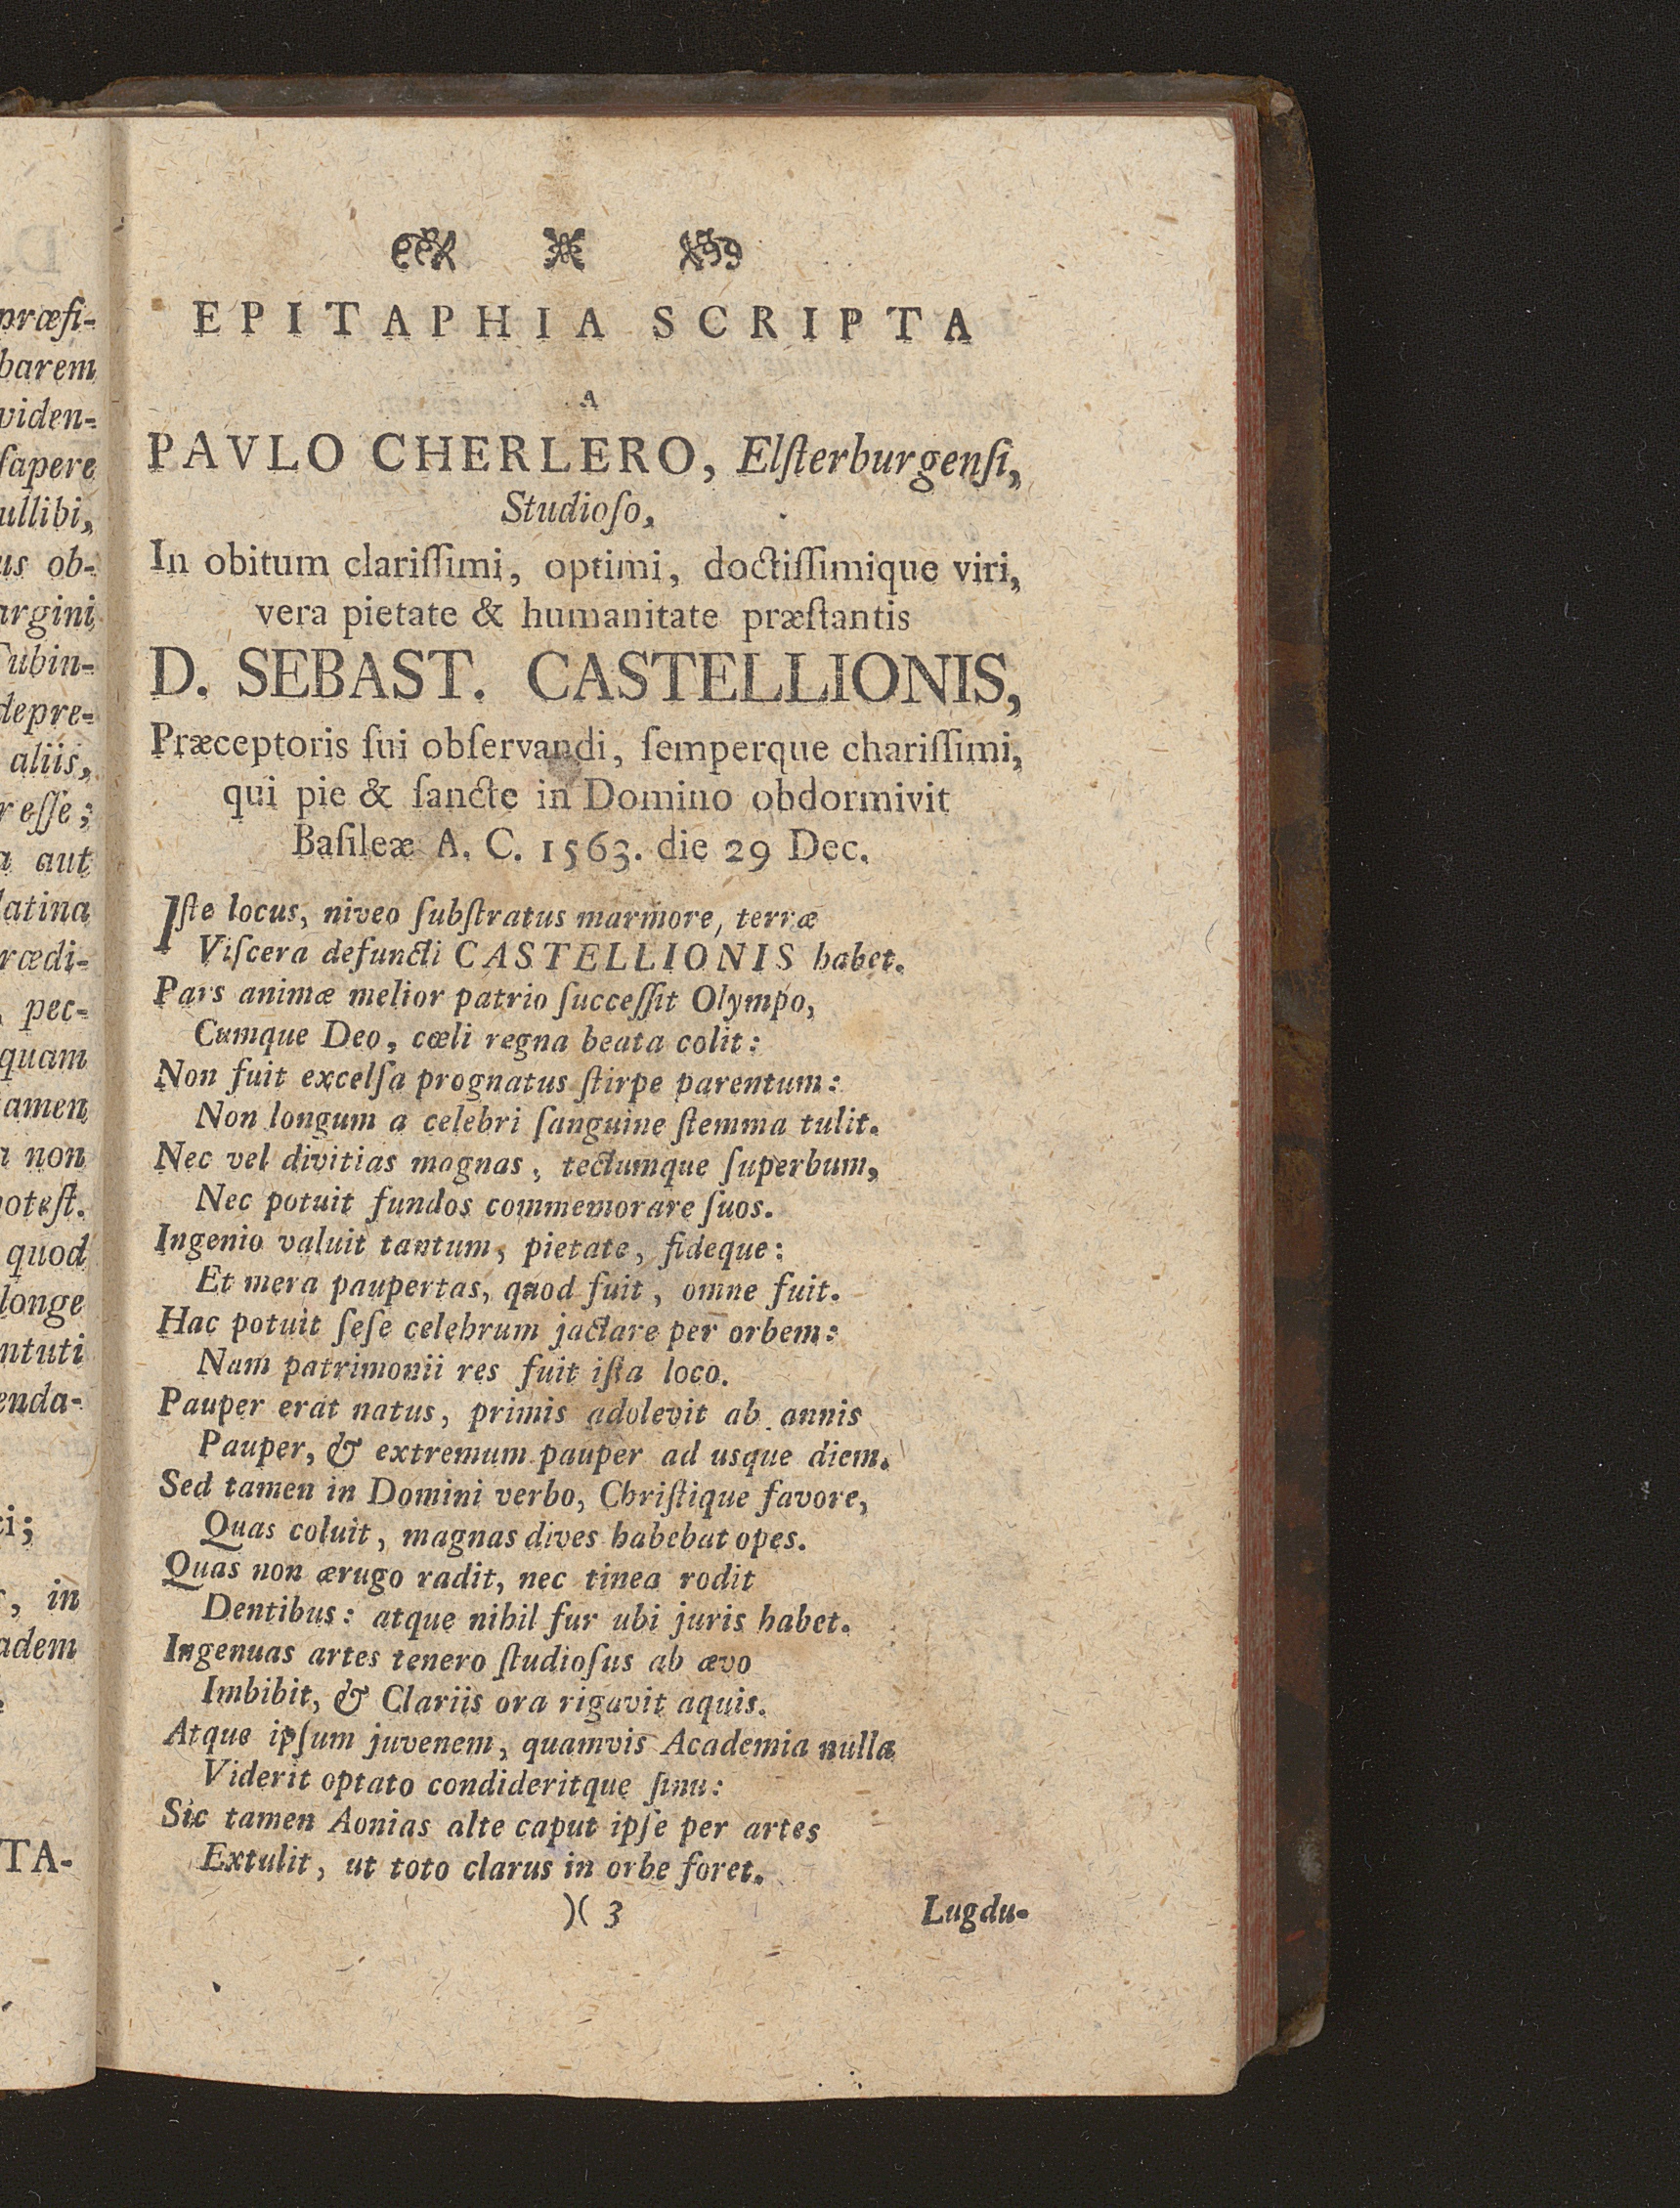 præfi-
barem
viden-
ſapere
ullibi,
us ob-
argini
Tubin-
depre-
aliis,
r eſſe;
a aut
latina
rædi-
, pec-
quam
tamen
a non
poteſt.
quod
longe
ntuti
enda-
ti;
r, in
adem
TA-
EPITAPHIA SCRIPTA
A
PAVLO CHERLERO, Elſterburgenſi,
Studioſo,
In obitum clariſſimi, optimi, doctiſſimique viri,
vera pietate & humanitate præſtantis
D. SEBAST. CASTELLIONIS,
Præceptoris ſui obſervandi, ſemperque chariſſimi,
qui pie & ſancte in Domino obdormivit
Baſileæ A. C. 1563. die 29 Dec.
Iſte locus, niveo ſubſtratus marmore, terræ
Viſcera defuncti CASTELLIONIS habet.
Pars animæ melior patrio ſucceſſit Olympo,
Cumque Deo, cœli regna beata colit:
Non fuit excelſa prognatus ſtirpe parentum:
Non longum a celebri ſanguine ſtemma tulit.
Nec vel divitias magnas, tectumque ſuperbum,
Nec potuit fundos commemorare ſuos.
Ingenio valuit tantum, pietate, fideque:
Et mera paupertas, quod fuit, omne fuit.
Hac potuit ſeſe celebrum jactare per orbem:
Nam patrimonii res fuit iſta loco.
Pauper erat natus, primis adolevit ab annis
Pauper, & extremum pauper ad usque diem.
Sed tamen in Domini verbo, Chriſtique favore,
Quas coluit, magnas dives habebat opes.
Quas non ærugo radit, nec tinea rodit
Dentibus: atque nihil fur ubi juris habet.
Ingenuas artes tenero ſtudioſus ab ævo
Imbibit, & Clariis ora rigavit aquis.
Atque ipſum juvenem, quamvis Academia nulla
Viderit optato condideritque ſinu:
Sic tamen Aonias alte caput ipſe per artes
Extulit, ut toto clarus in orbe foret.
)( 3 Lugdu-